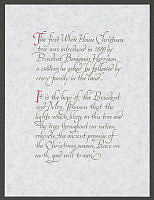 The first White House Christmas
tree was introduced in 1889 by
President Benjamin Harrison,
a custom he asked be followed by
every family in the land.
It is the hope of the President
and Mrs. Johnson that the
lights which blaze on this tree and
the trees throughout our nation,
rekindle the ancient promise of
the Christmas season, Peace on
earth, good will to men.